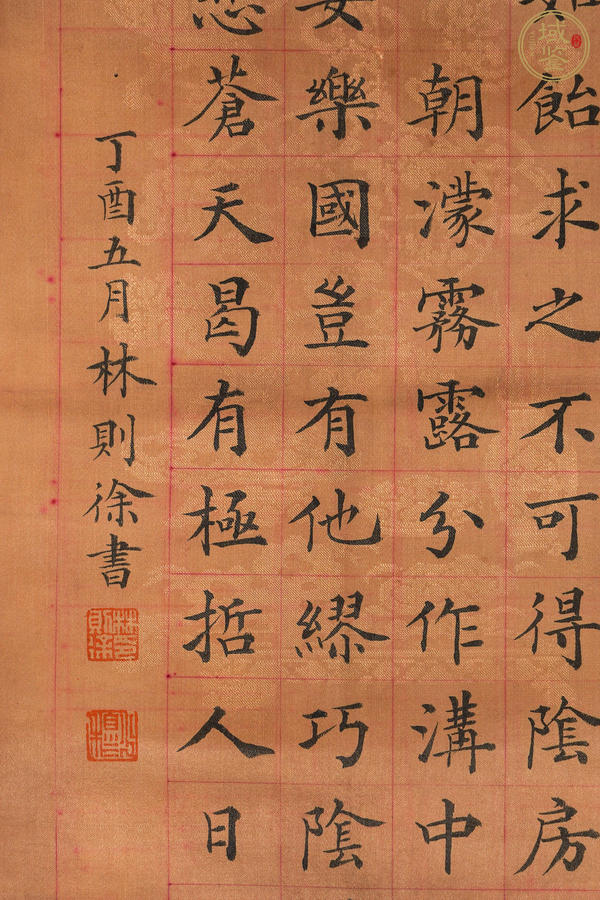 如飴求之不可得陰房
朝濛霧露分作溝中
安樂國豈有他繆巧陰
悲蒼天曷有極哲人日
丁酉五月林則徐書
林則徐印
域鑒